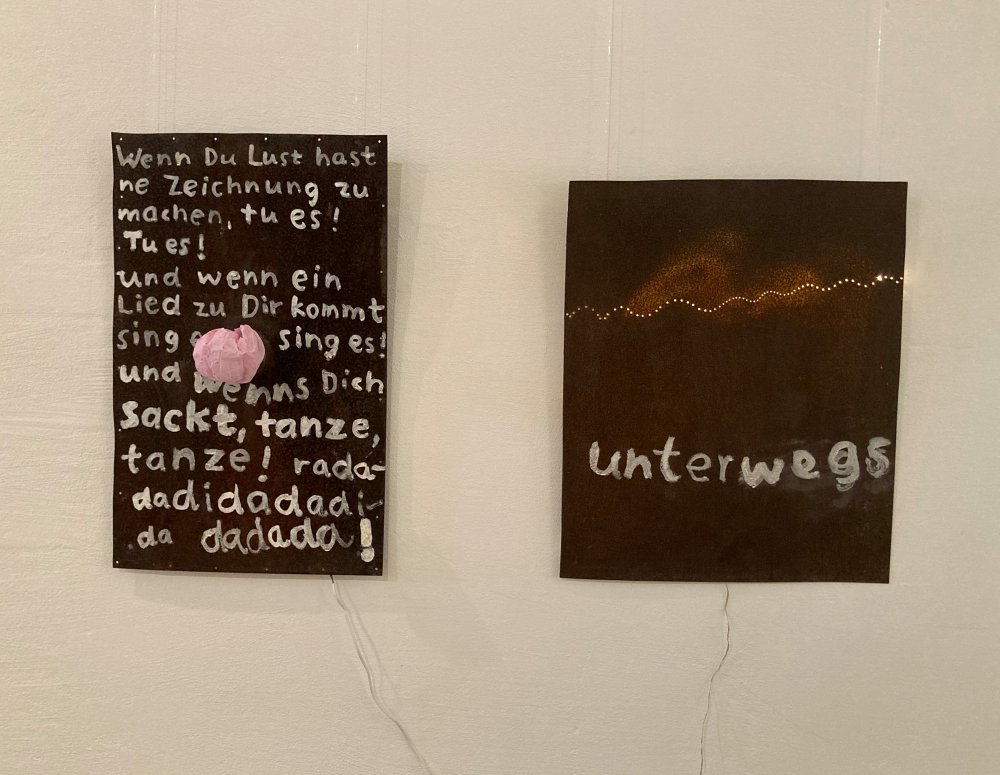 Wenn Du Lust hast
ne Zeichnung zu
machen, tu es!
Tu es!
und wenn ein
Lied zu Dir kommt
sing sing es!
und wenns Dich
sackt, tanze,
tanze! rada-
dadidadadi-
da dadada!
unterwegs